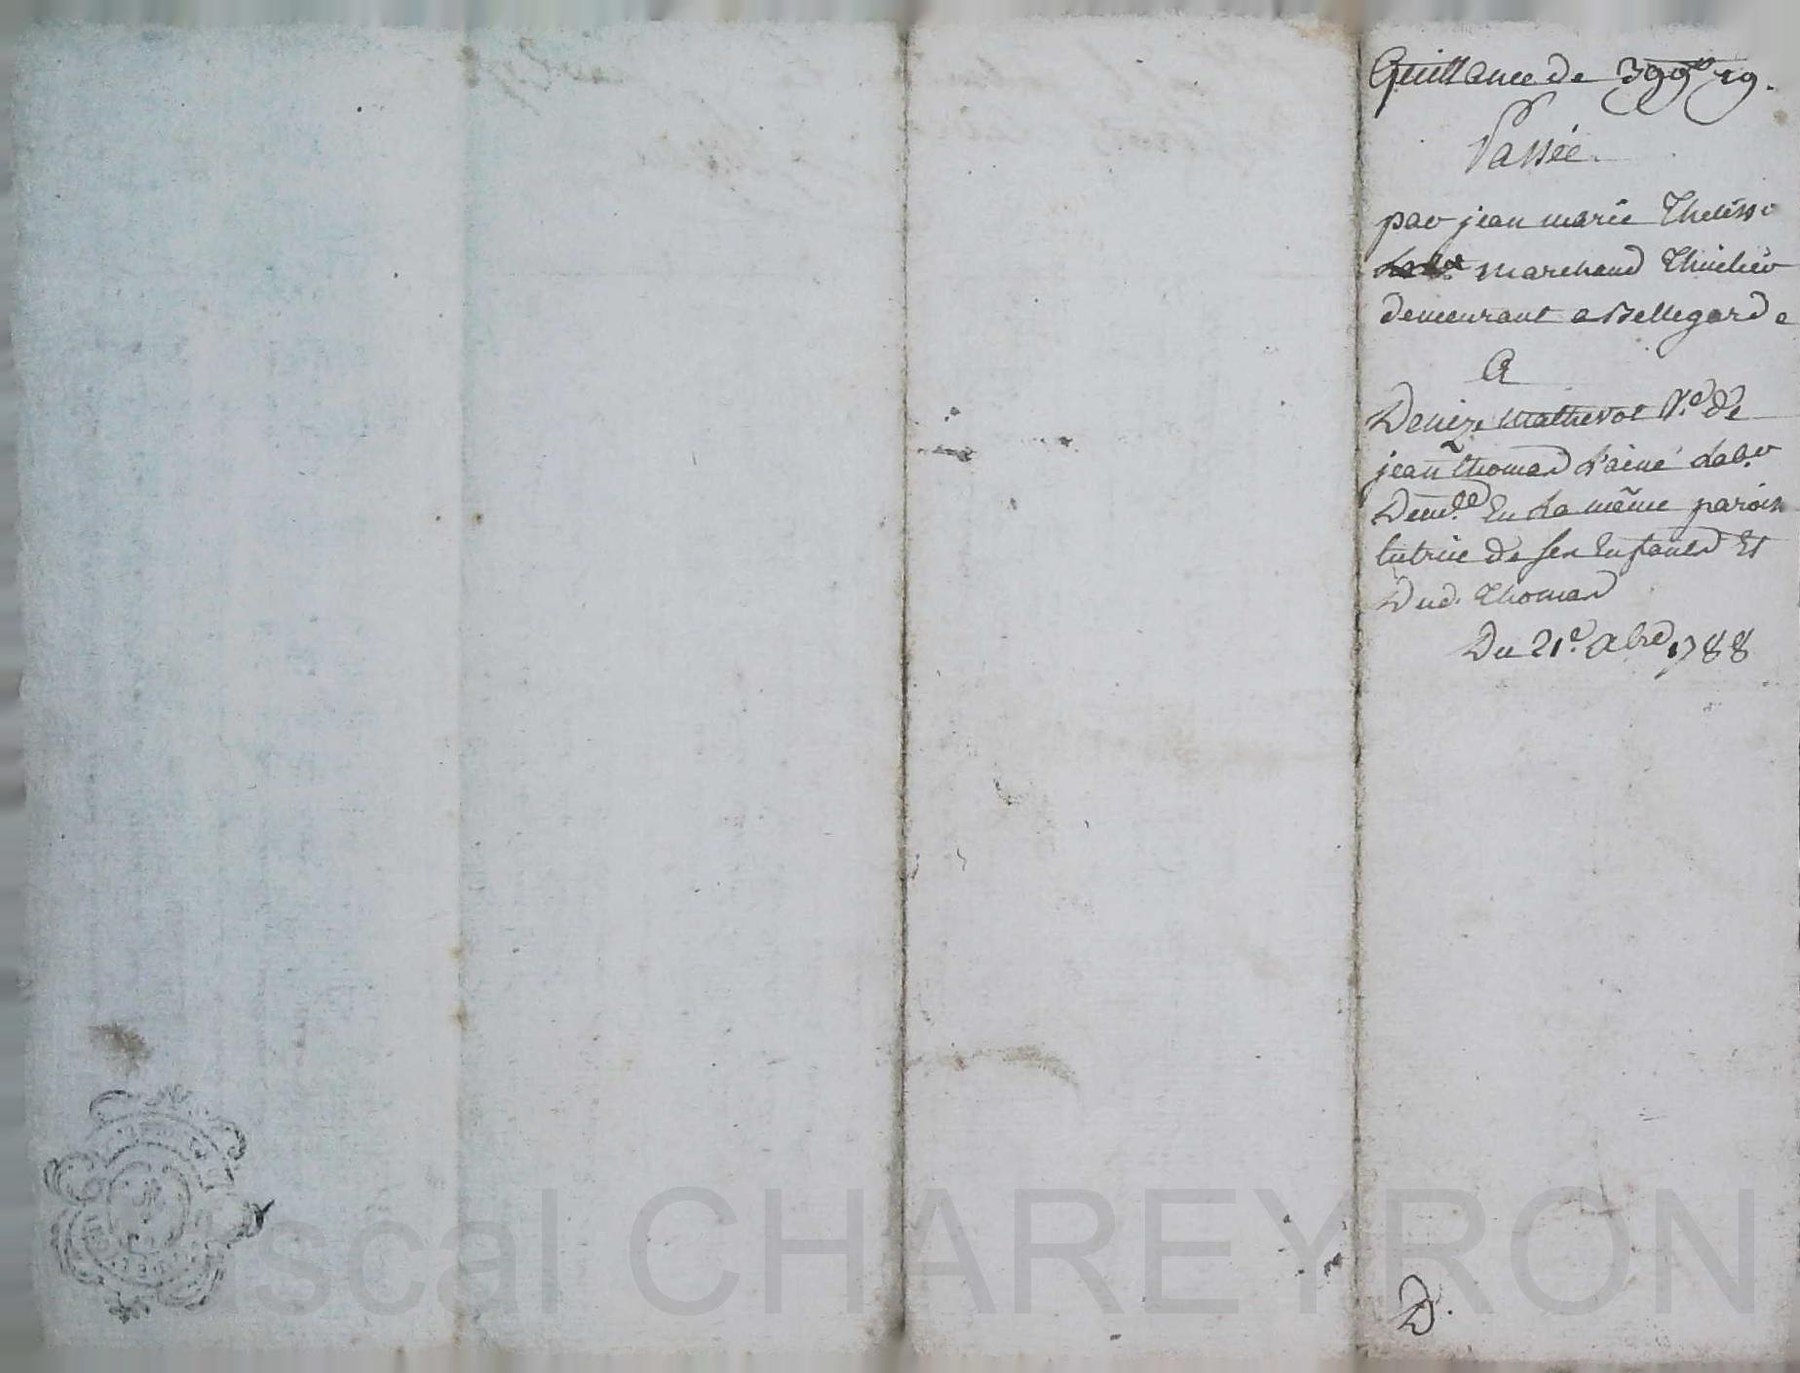 Quittance de 399# 19.
Passée
par jean marie
marchand
demeurant a Bellegarde
A
Denize mathevot V.e de
jean thomas l'ainé Lab.r
Dem.te En La même parois
tutrice de ses Enfants Et
Dud. thomas
Du 21.e Xbre 1788
D.
scal CHAREYRON